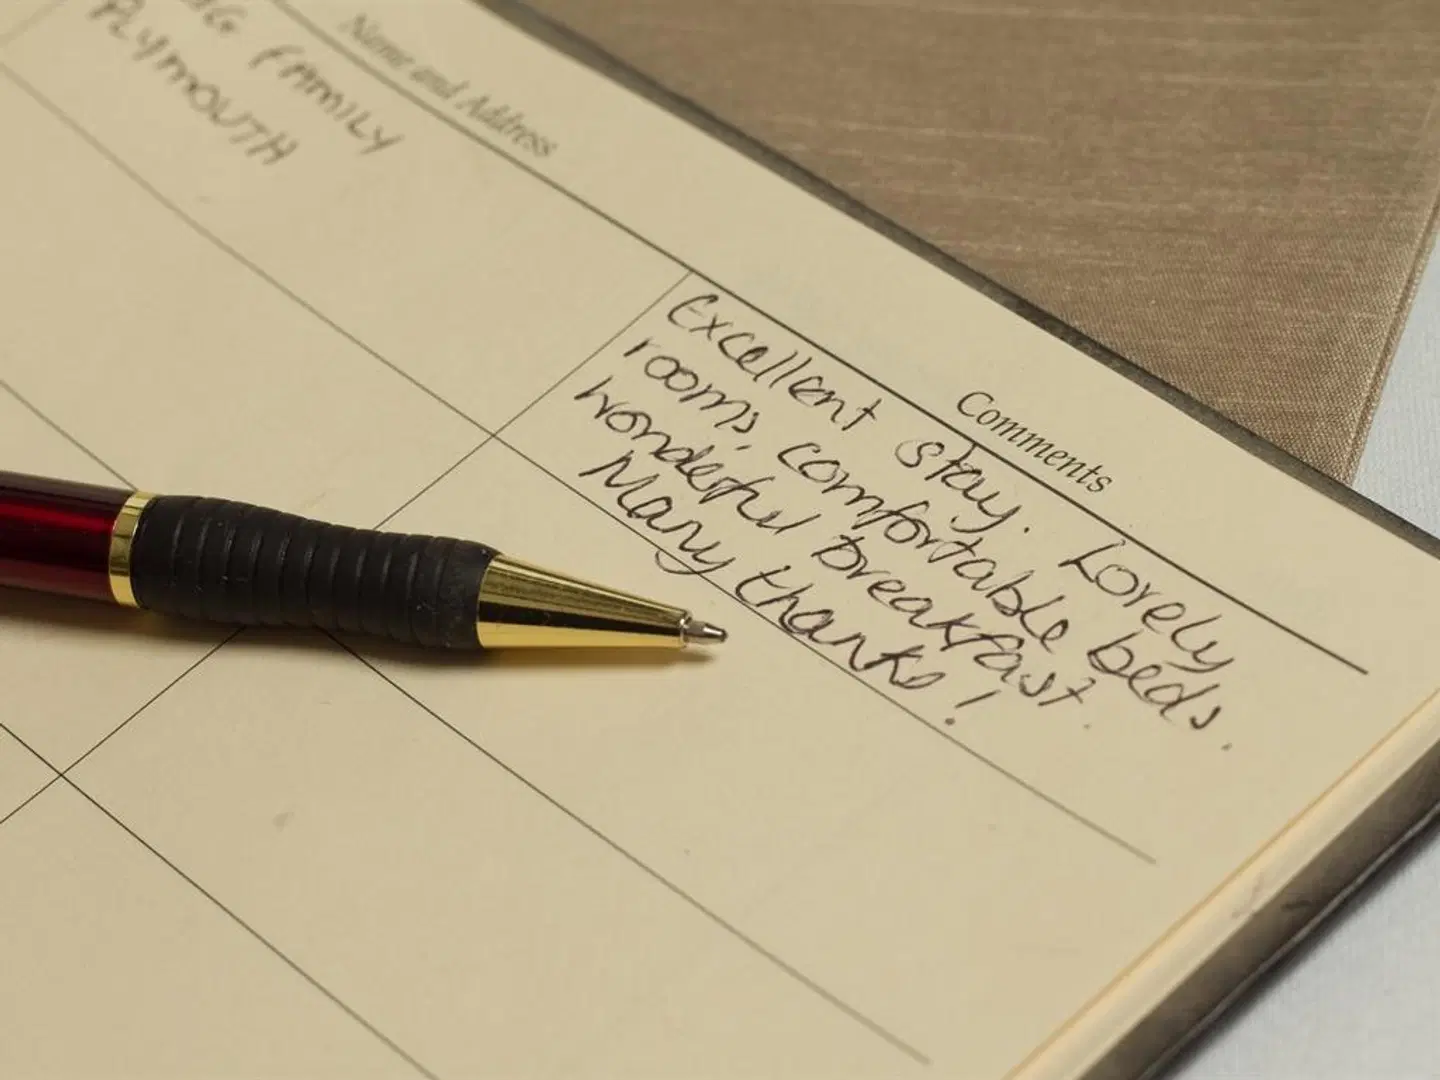 Name and Address
FAMILY
PLYMOUTH
Comments
Excellent stay. Lovely
rooms, comfortable beds.
wonderful breakfast.
Many thanks!